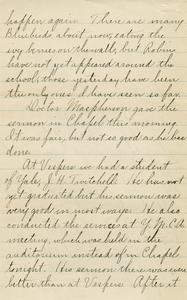 happen again. There are many
Bluebirds about now, eating the
ivy berries on the wall, but Robins
have not yet appeared around the
school; those yesterday have been
the only ones I have seen so far.
Doctor Macpherson gave the
sermon in Chapel this morning.
It was fair, but not so good as he has
done.
At Vespers we had a student
of Yale, J. H. Twitchell. He has not
yet graduated but his sermon was
very good in most ways. He also
conducted the service at Y. M. C. A.
meeting, which was held in the
auditorium instead of in Chapel
tonight. His sermon there was even
better than at Vespers. After it